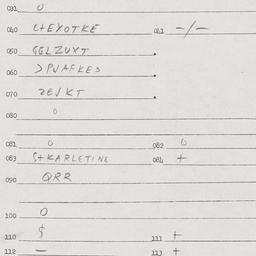 031 0
040 C+EYOTKE 041 -/-
050 GELZUXT .
060 >PUAFKES .
070 ZE/KT .
080 0
081 0 082 0
083 S+KARLETINE 084 +
090 QRR
100 0
110 $ 111 +
112 - 113 +